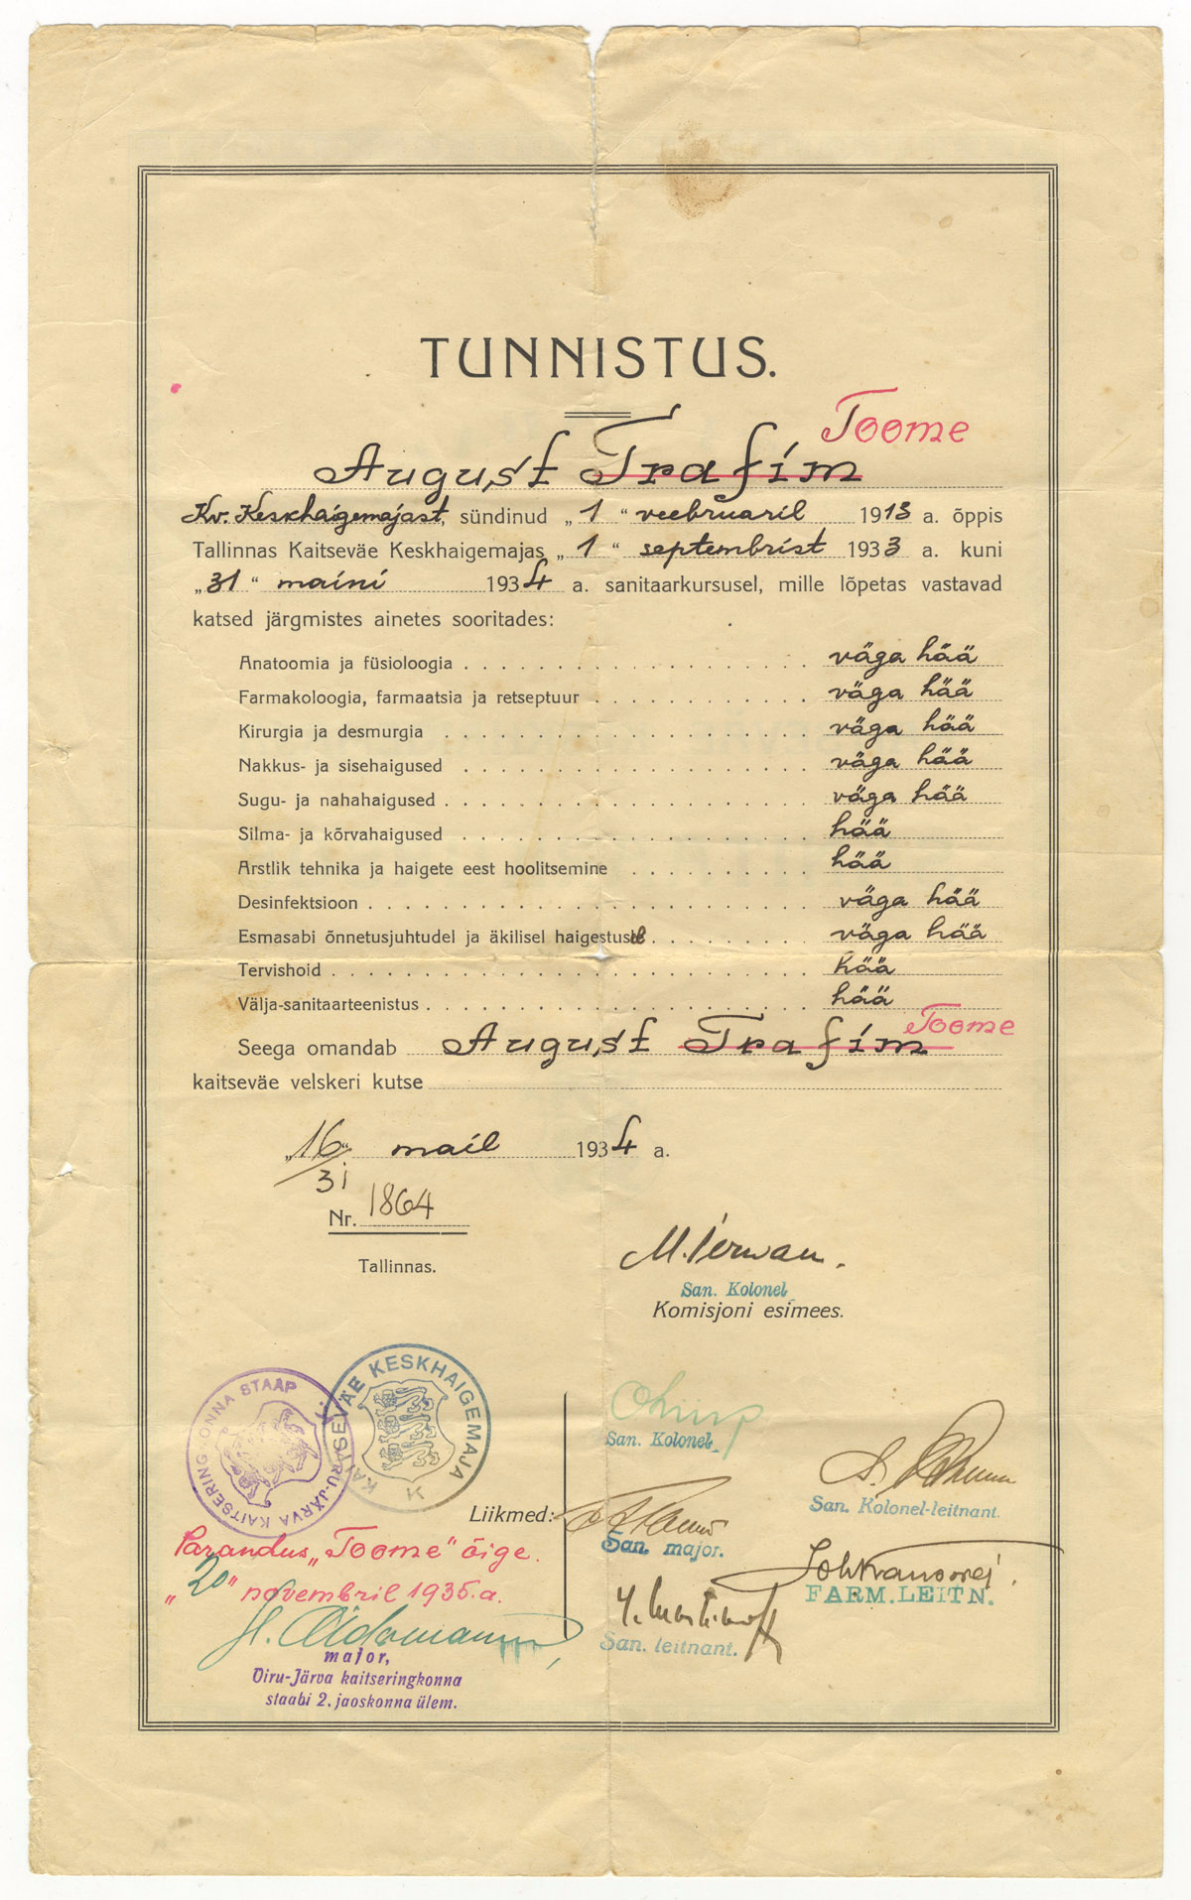 TUNNISTUS.
Toome
August Trafim
Kv. Keskhaigemajast, sündinud „1“ veebruaril 1913 a. õppis
Tallinnas Kaitseväe Keskhaigemajas „1“ septembrist 1933 a. kuni
„31“ maini 1934 a. sanitaarkursusel, mille lõpetas vastavad
katsed järgmistes ainetes sooritades:
Anatoomia ja füsioloogia väga hää
Farmakoloogia, farmaatsia ja retseptuur väga hää
Kirurgia ja desmurgia väga hää
Nakkus- ja sisehaigused väga hää
Sugu- ja nahahaigused väga hää
Silma- ja kõrvahaigused hää
Arstlik tehnika ja haigete eest hoolitsemine hää
Desinfektsioon väga hää
Esmasabi õnnetusjuhtudel ja äkilisel haigestusel väga hää
Tervishoid hää
Välja-sanitaarteenistus hää
Toome
Seega omandab August Trafim
kaitseväe velskeri kutse
„16“ mail 1934 a.
31
Nr. 1864
Tallinnas.
San. Kolonel
Komisjoni esimees.
VIRU-JÄRVA KAITSERINGKONNA STAAP
KAITSEVÄE KESKHAIGEMAJA
San. Kolonel
San. Kolonel-leitnant.
Liikmed:
San. major.
FARM. LEITN.
San. leitnant.
Parandus „Toome“ õige.
„20“ novembril 1935.a.
major,
Viru-Järva kaitseringkonna
staabi 2. jaoskonna ülem.